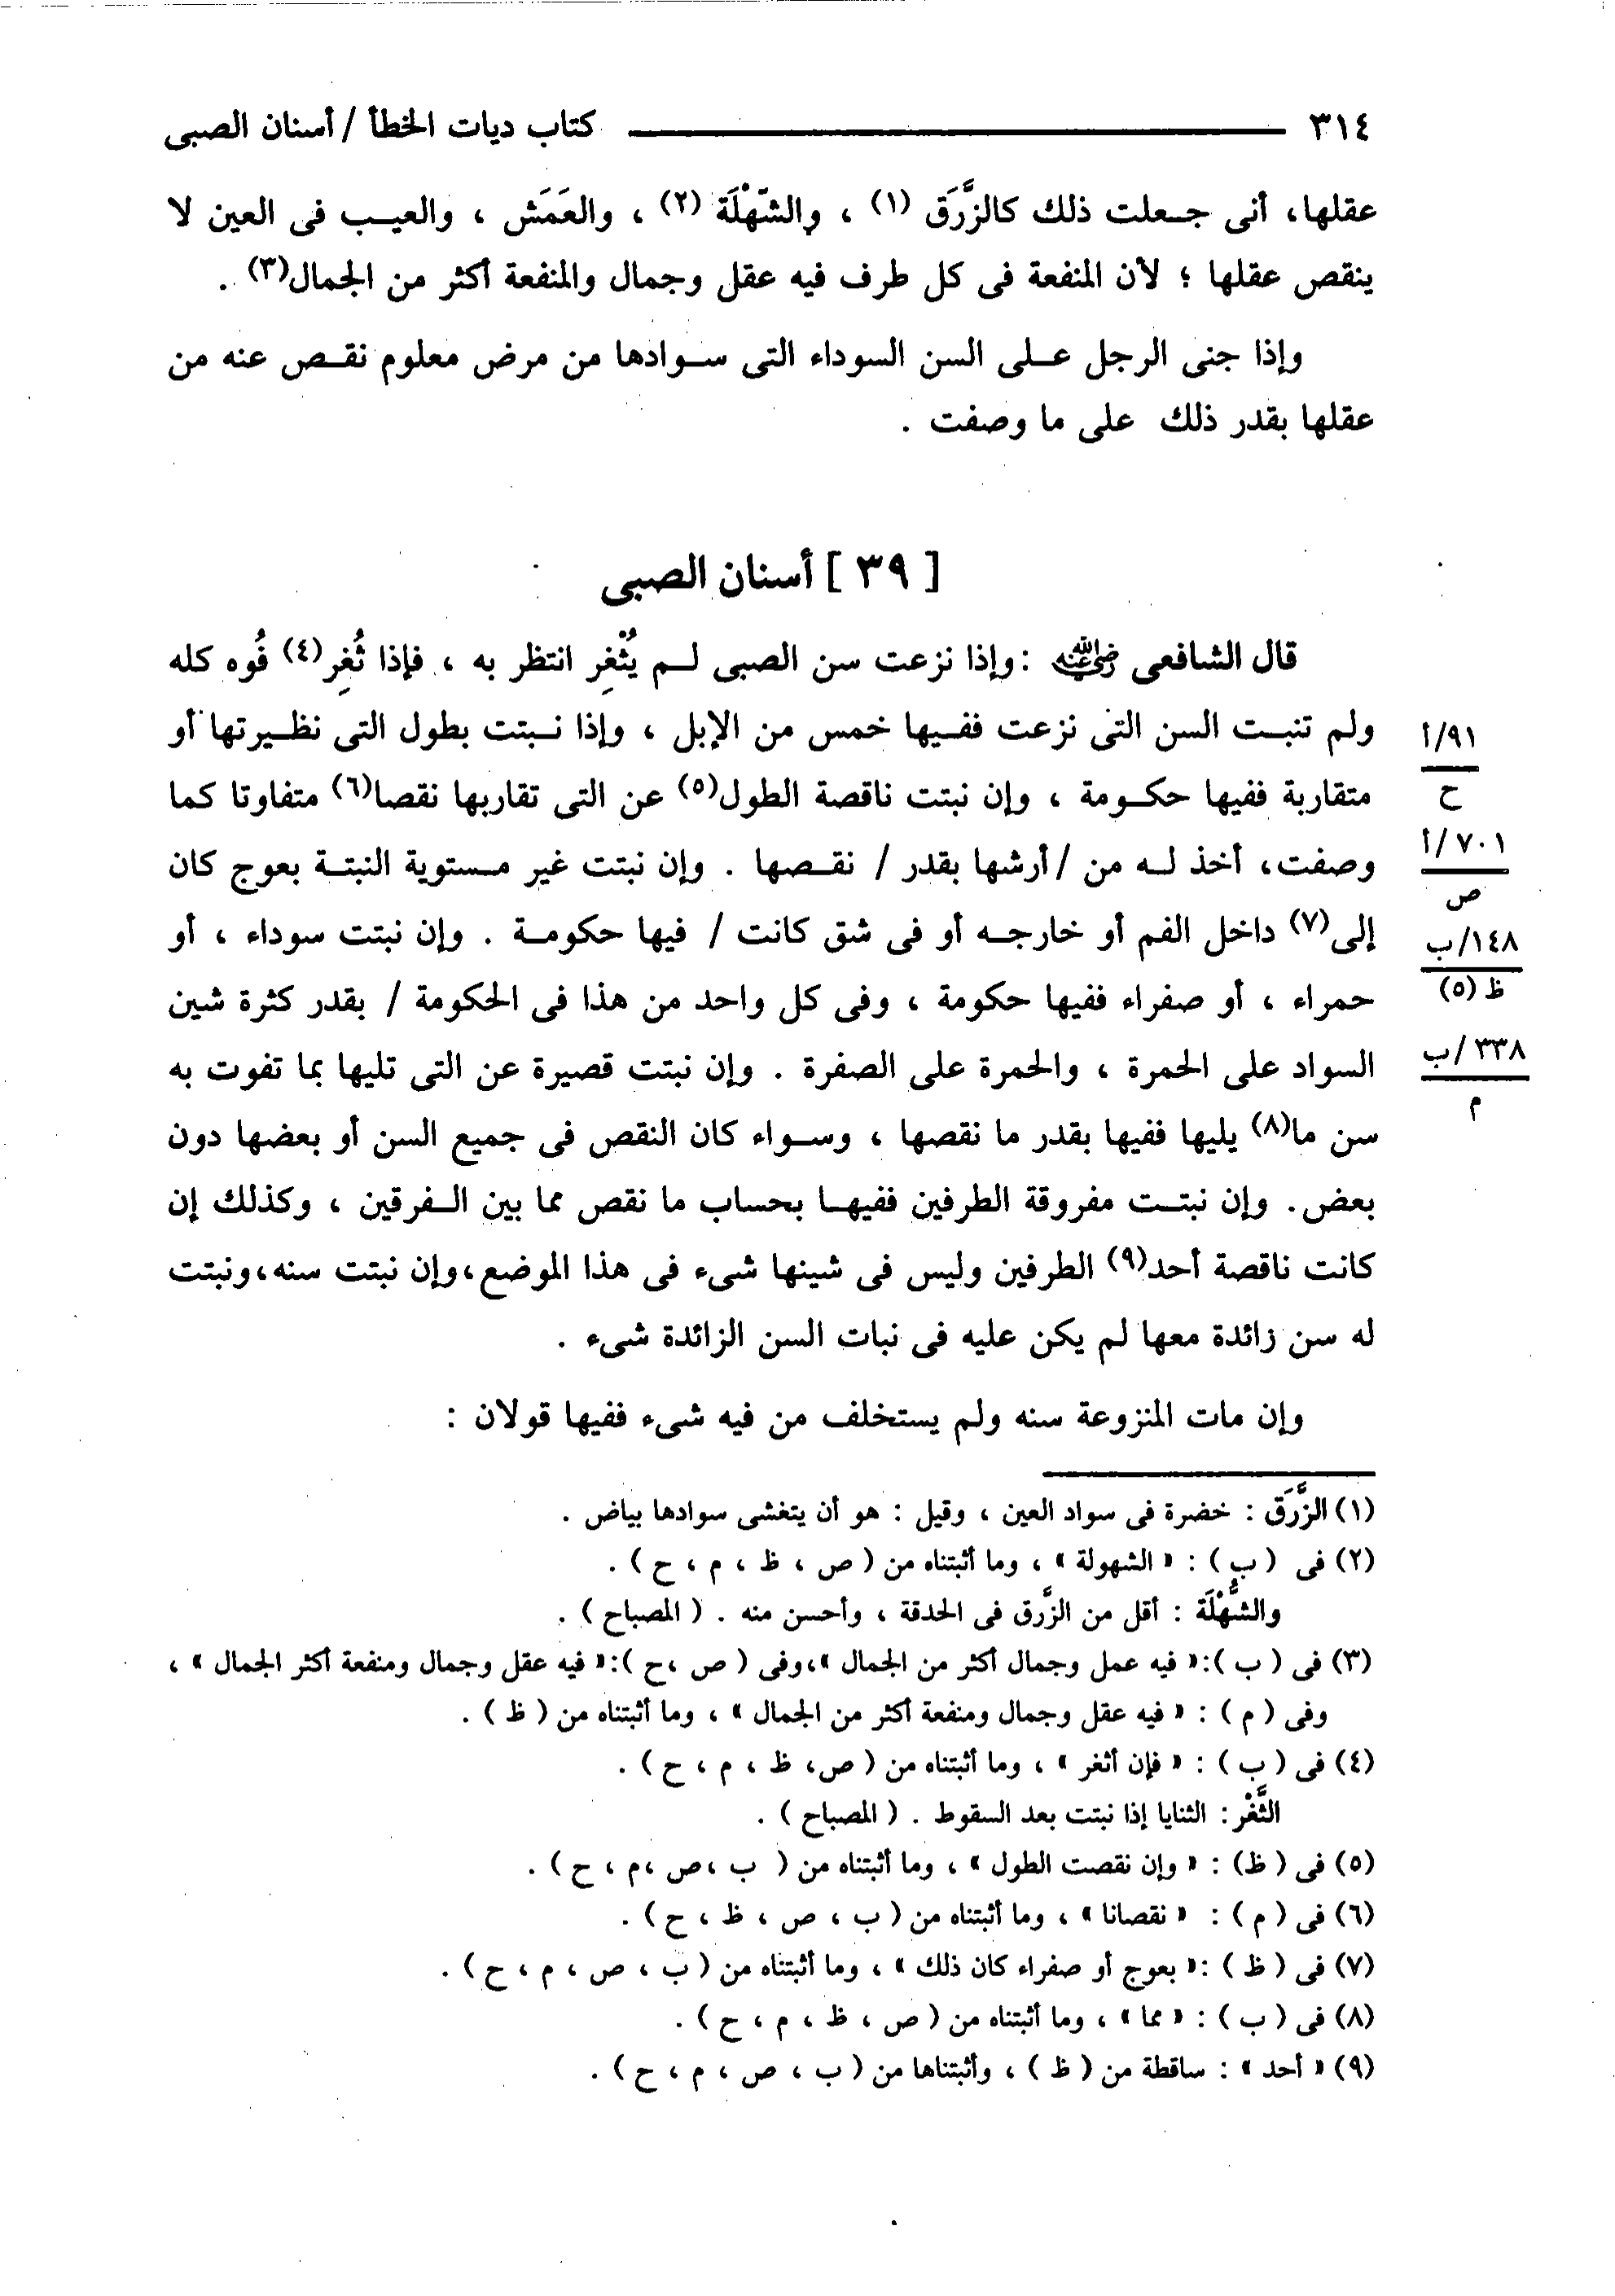 ٣١٤ كتاب ديات الخطأ / أسنان الصبى
عقلها، أنى جعلت ذلك كالزَّرَق (١) ، والشّهْلَة (٢) ، والعَمَش ، والعيب فى العين لا
ينقص عقلها ؛ لأن المنفعة فى كل طرف فيه عقل وجمال والمنفعة أكثر من الجمال(٣) .
وإذا جنى الرجل على السن السوداء التى سوادها من مرض معلوم نقص عنه من
عقلها بقدر ذلك على ما وصفت .
[ ٣٩ ] أسنان الصبى
قال الشافعى رضي الله عنه : وإذا نزعت سن الصبى لم يُثْغِر انتظر به ، فإذا ثُغِر(٤) فُوه كله
ولم تنبت السن التى نزعت ففيها خمس من الإبل ، وإذا نبتت بطول التى نظيرتها أو
متقاربة ففيها حكومة ، وإن نبتت ناقصة الطول(٥) عن التى تقاربها نقصا(٦) متفاوتا كما
وصفت، أخذ له من / أرشها بقدر / نقصها . وإن نبتت غير مستوية النبتة بعوج كان
إلى(٧) داخل الفم أو خارجه أو فى شق كانت / فيها حكومة . وإن نبتت سوداء ، أو
حمراء ، أو صفراء ففيها حكومة ، وفى كل واحد من هذا فى الحكومة / بقدر كثرة شين
السواد على الحمرة ، والحمرة على الصفرة . وإن نبتت قصيرة عن التى تليها بما تفوت به
سن ما(٨) يليها ففيها بقدر ما نقصها ، وسواء كان النقص فى جميع السن أو بعضها دون
بعض. وإن نبتت مفروقة الطرفين ففيها بحساب ما نقص مما بين الفرقين ، وكذلك إن
كانت ناقصة أحد(٩) الطرفين وليس فى شينها شىء فى هذا الموضع، وإن نبتت سنه، ونبتت
له سن زائدة معها لم يكن عليه فى نبات السن الزائدة شىء .
وإن مات المنزوعة سنه ولم يستخلف من فيه شىء ففيها قولان :
٩١/أ
ح
٧٠١/أ
ص
١٤٨/ب
ظ (٥)
٣٣٨/ب
م
(١) الزَّرَق : خضرة فى سواد العين ، وقيل : هو أن يتغشى سوادها بياض .
(٢) فى ( ب ) : « الشهولة » ، وما أثبتناه من ( ص ، ظ ، م ، ح ) .
والشُّهْلَة : أقل من الزَّرق فى الحدقة ، وأحسن منه . ( المصباح ) .
(٣) فى ( ب ):« فيه عمل وجمال أكثر من الجمال »،وفى ( ص ،ح ):« فيه عقل وجمال ومنفعة أكثر الجمال » ،
وفى ( م ) : « فيه عقل وجمال ومنفعة أكثر من الجمال » ، وما أثبتناه من ( ظ ) .
(٤) فى ( ب ) : « فإن أثغر » ، وما أثبتناه من ( ص، ظ ، م ، ح ) .
الثَّغْر : الثنايا إذا نبتت بعد السقوط . ( المصباح ) .
(٥) فى ( ظ) : « وإن نقصت الطول » ، وما أثبتناه من ( ب ،ص ،م ، ح ) .
(٦) فى ( م ) : « نقصانا » ، وما أثبتناه من ( ب ، ص ، ظ ، ح ) .
(٧) فى ( ظ ) :« بعوج أو صفراء كان ذلك » ، وما أثبتناه من ( ب ، ص ، م ، ح ) .
(٨) فى ( ب ) : « مما » ، وما أثبتناه من ( ص ، ظ ، م ، ح ) .
(٩) « أحد » : ساقطة من ( ظ ) ، وأثبتناها من ( ب ، ص ، م ، ح ) .